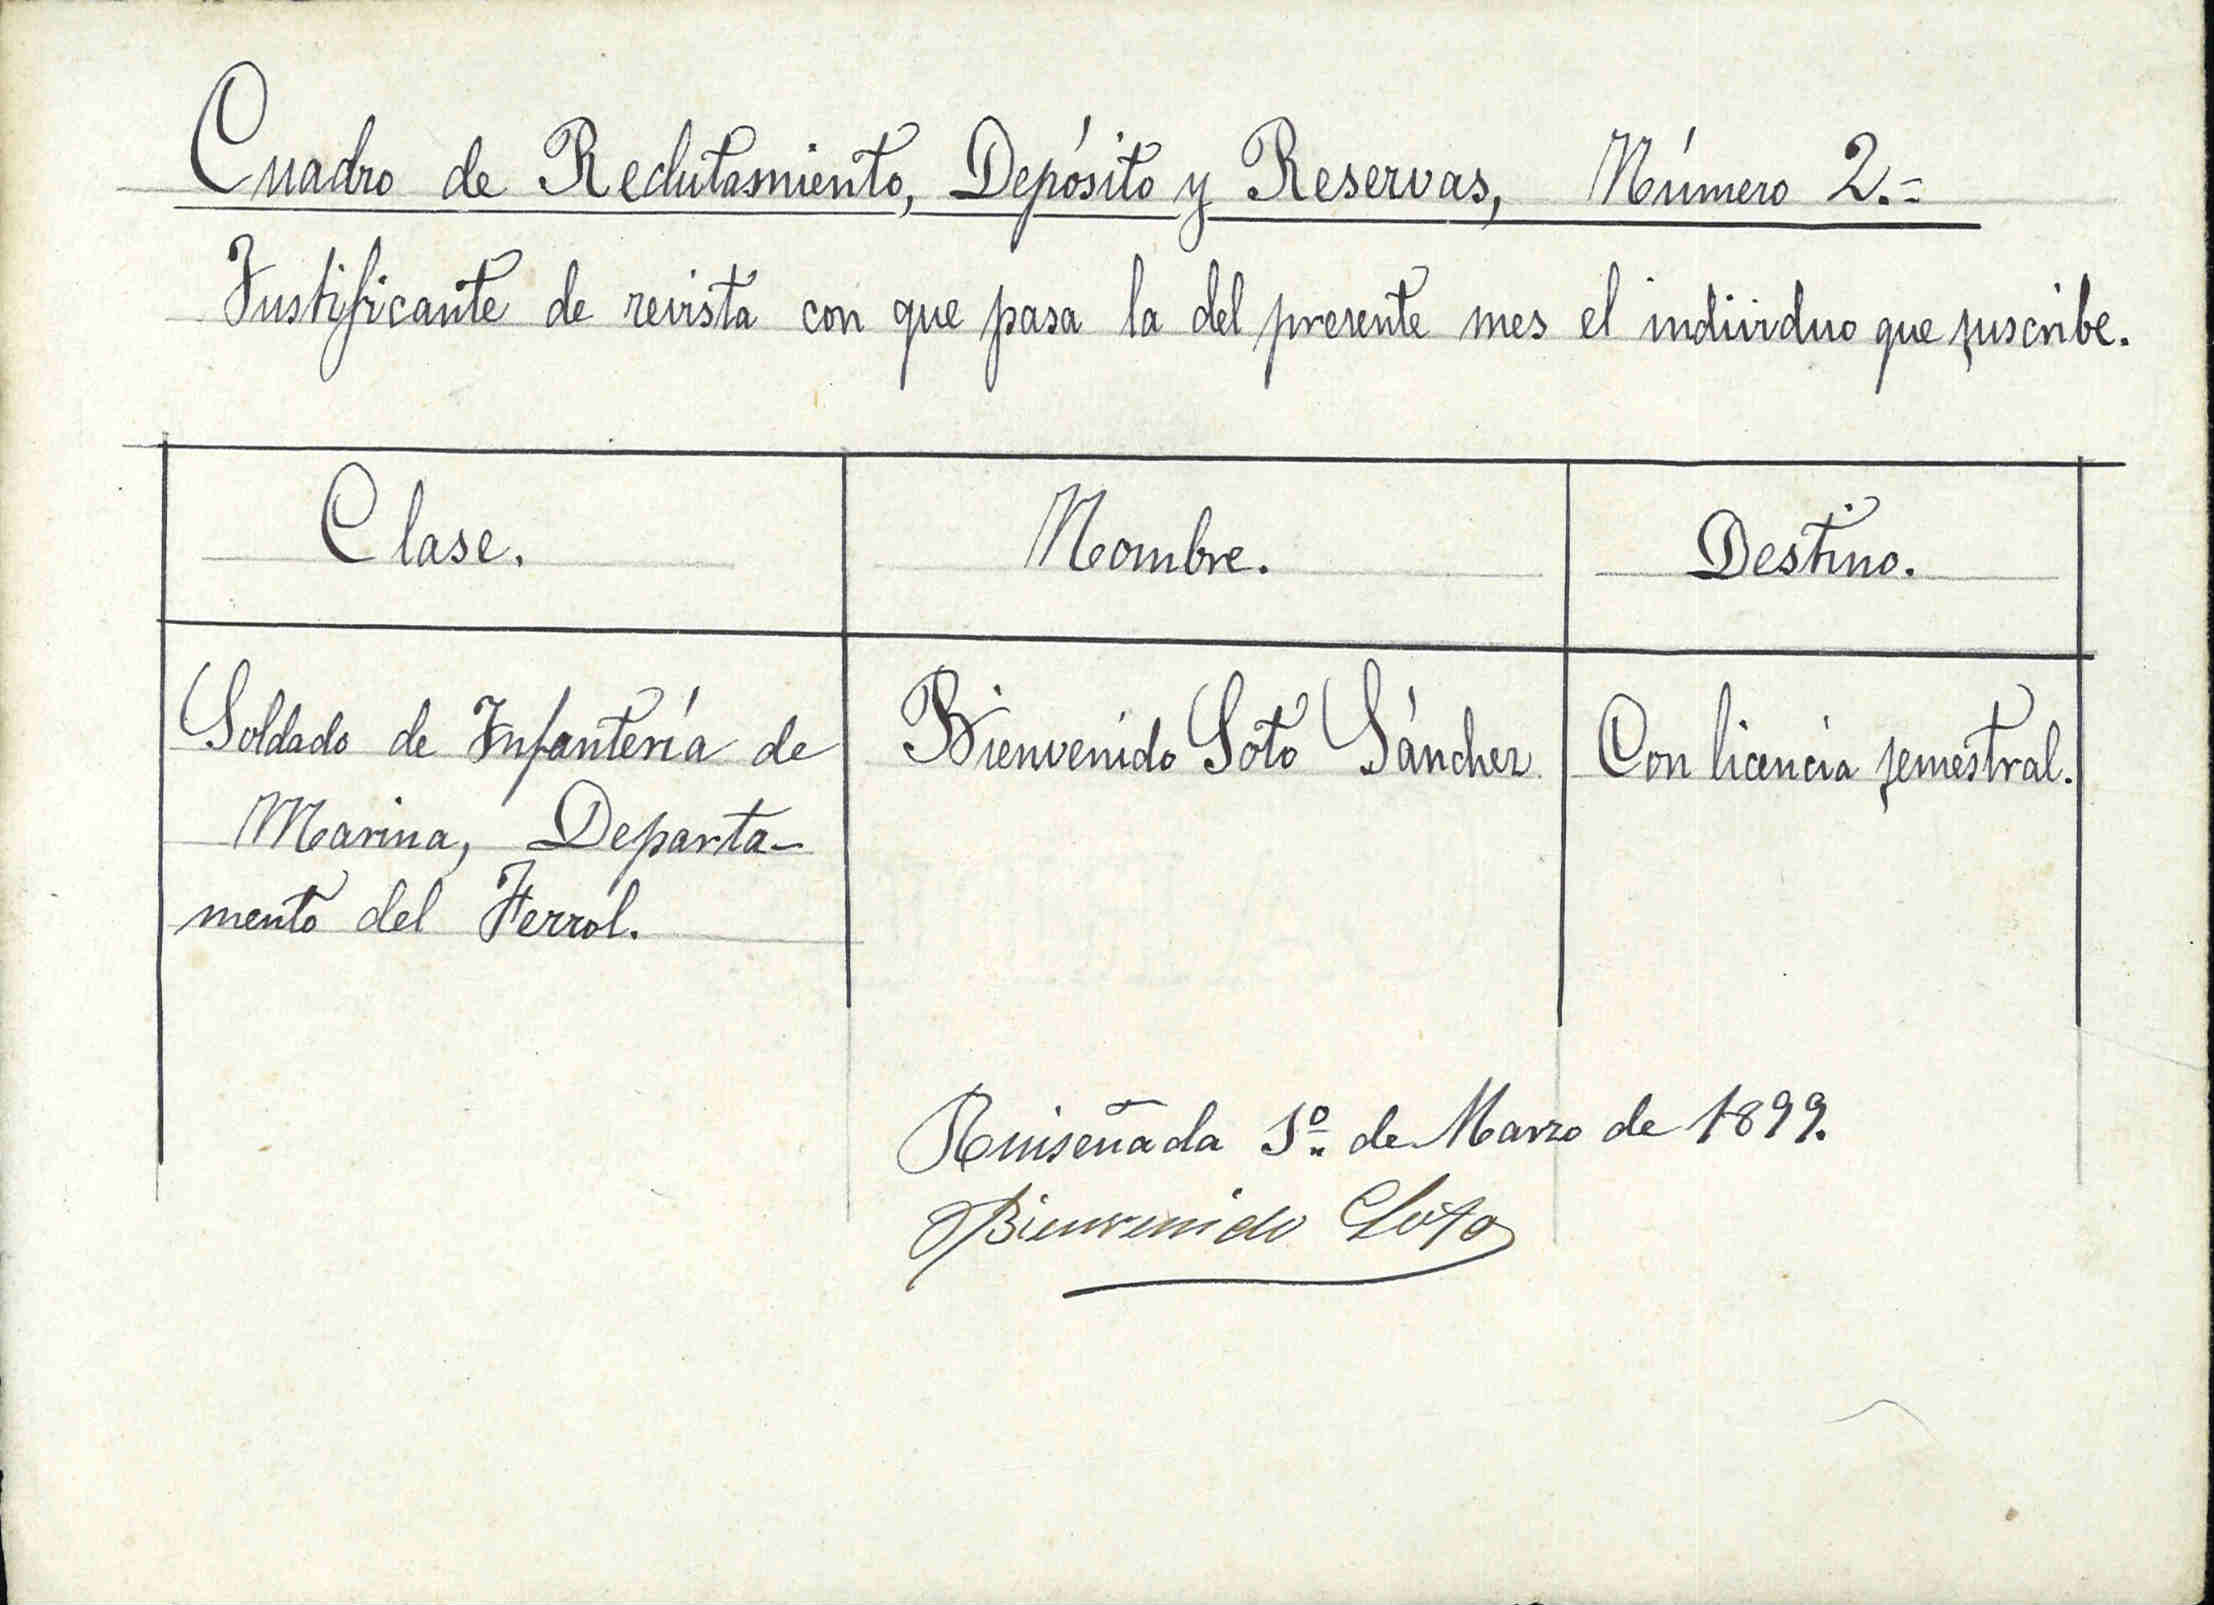 Cuadro de Reclutamiento, Depósito y Reservas, Número 2.=
Justificante de revista con que pasa la del presente mes el individuo que suscribe.
Clase. Nombre. Destino.
Soldado de Infantería de Bienvenido Soto Sánchez Con licencia semestral.
Marina, Departa-
mento del Ferrol.
Ruiseñada 1º de Marzo de 1899.
Bienvenido Soto